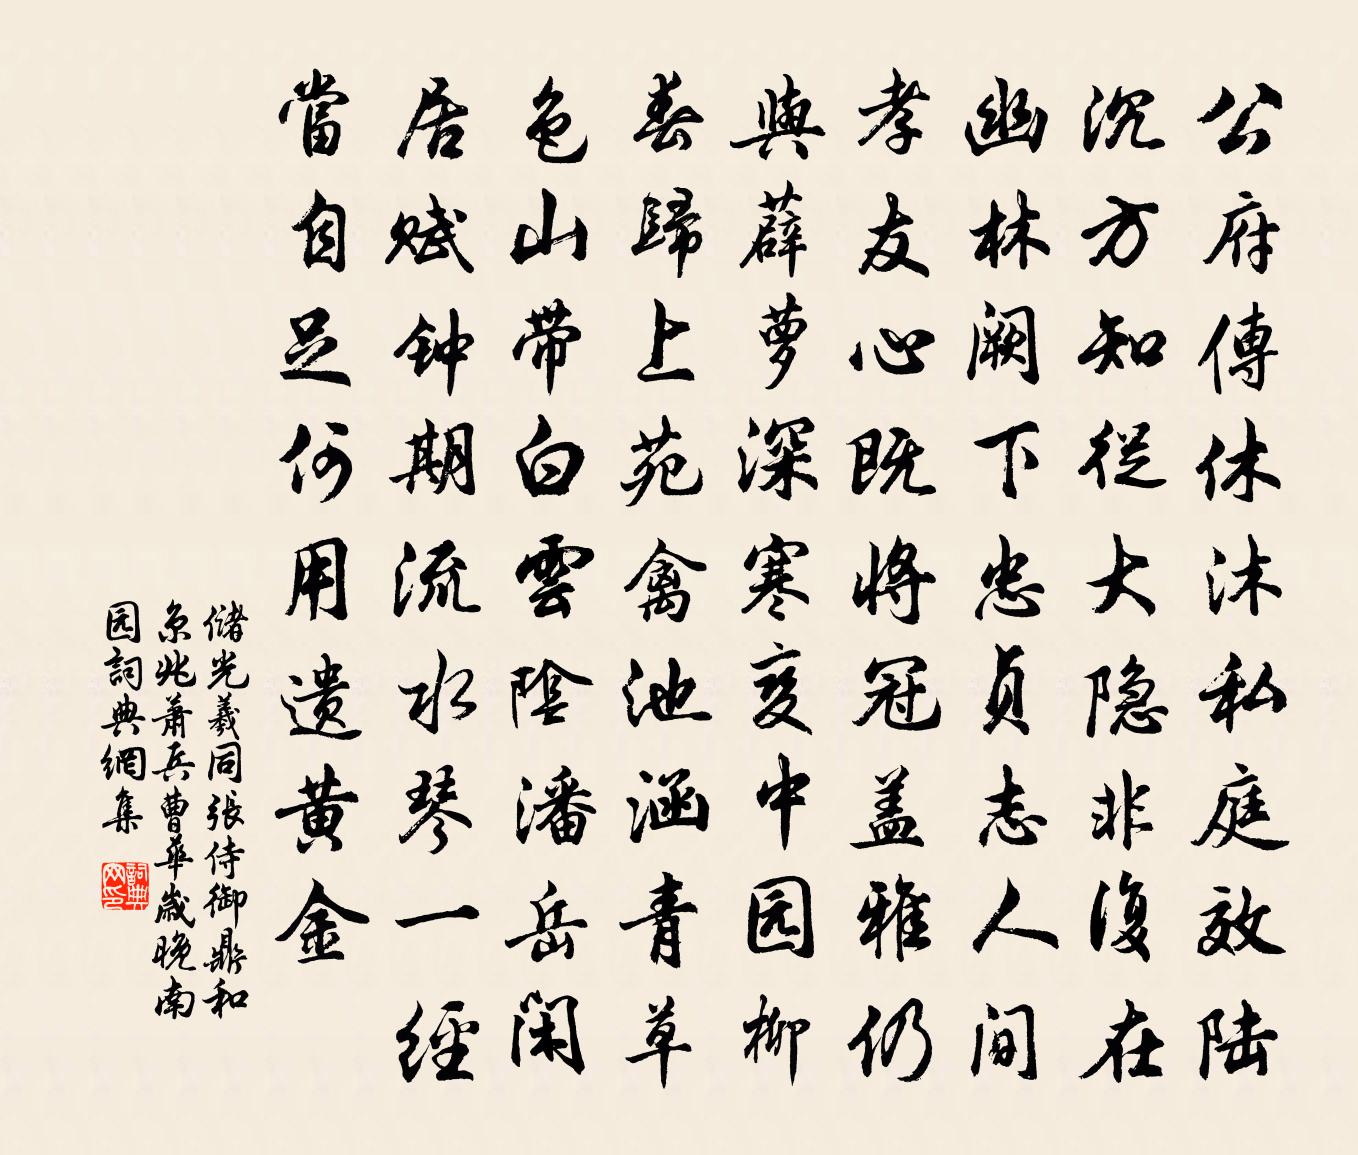 公府傳休沐私庭效陆
沉方知從大隐非復在
幽林阙下忠貞志人间
孝友心既将冠盖雅仍
與薜萝深寒变中园柳
春歸上苑禽池涵青草
色山带白雲陰潘岳闲
居赋钟期流水琴一经
當自足何用遗黄金
储光羲同張侍御鼎和
京兆萧兵曹華歲晚南
园詞典網集
詞典
网印